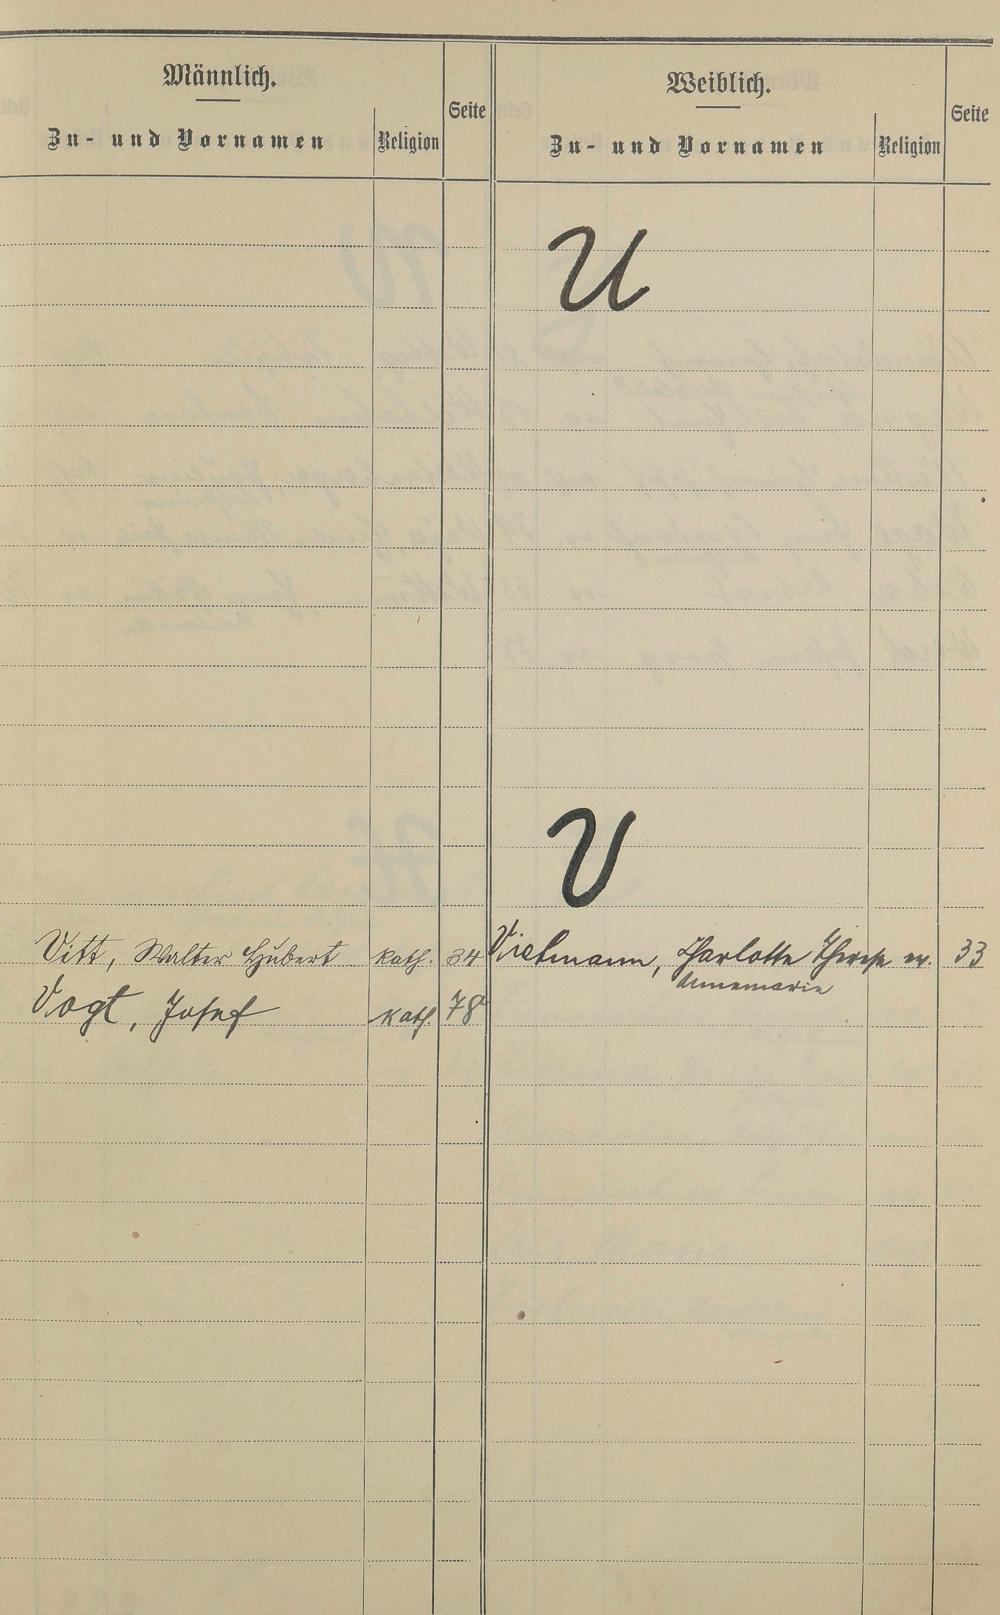 Männlich.
Zu- und Vornamen Religion Seite
Weiblich.
Zu- und Vornamen Religion Seite
U
V
Vitt, Walter Hubert kath. 34
Vogt, Josef kath. 78
Vietmann, Charlotte Therese ev. 33
Annemarie